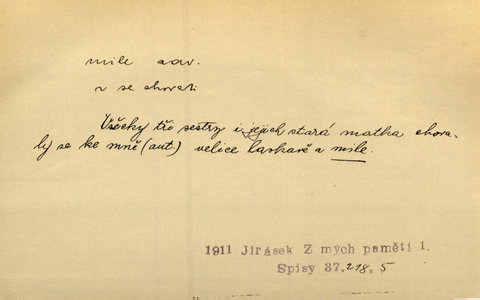 mile adv.
v se chovati
Všecky tři sestry i jejich stará matka chova-
ly se ke mně (aut.) velice laskavě a mile.
1911 Jirásek Z mých pamětí 1.
Spisy 37.218,5